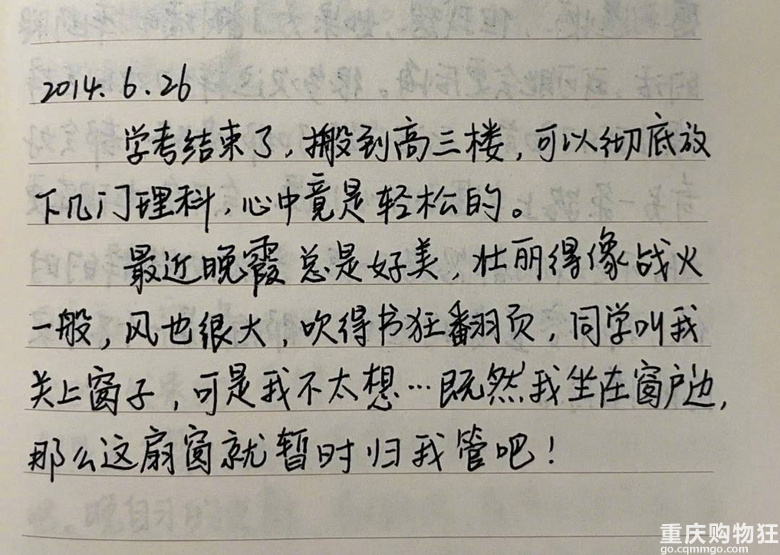 2014.6.26
学考结束了，搬到高三楼，可以彻底放
下几门理科，心中竟是轻松的。
最近晚霞总是好美，壮丽得像战火
一般，风也很大，吹得书狂翻页，同学叫我
关上窗子，可是我不太想…既然我坐在窗户边，
那么这扇窗就暂时归我管吧！
重庆购物狂
go.cqmmgo.com